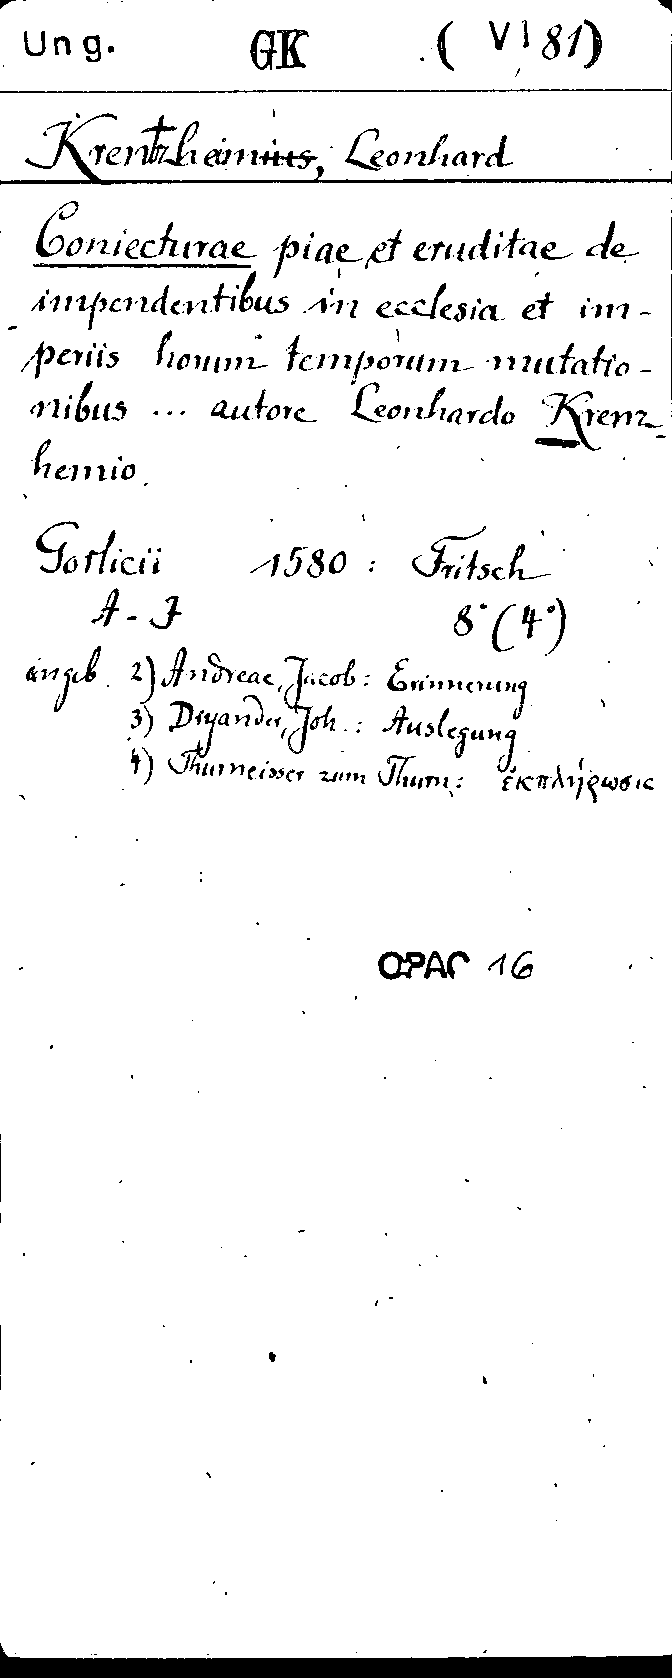 Ung. GK (VI 81)
Krentzheimius, Leonhard
Coniecturae piae et eruditae de
impendentibus in ecclesia et im-
periis horum temporum mutatio-
nibus ... autore Leonhardo Krenz-
hemio.
Gorlicii 1580 : Fritsch
A - J 8° (4°)
angeb. 2) Andreae, Jacob: Erinnerung
3) Dryander, Joh.: Auslegung
4) Thurneisser zum Thurn: ἐκπλήρωσις
OPAC 16